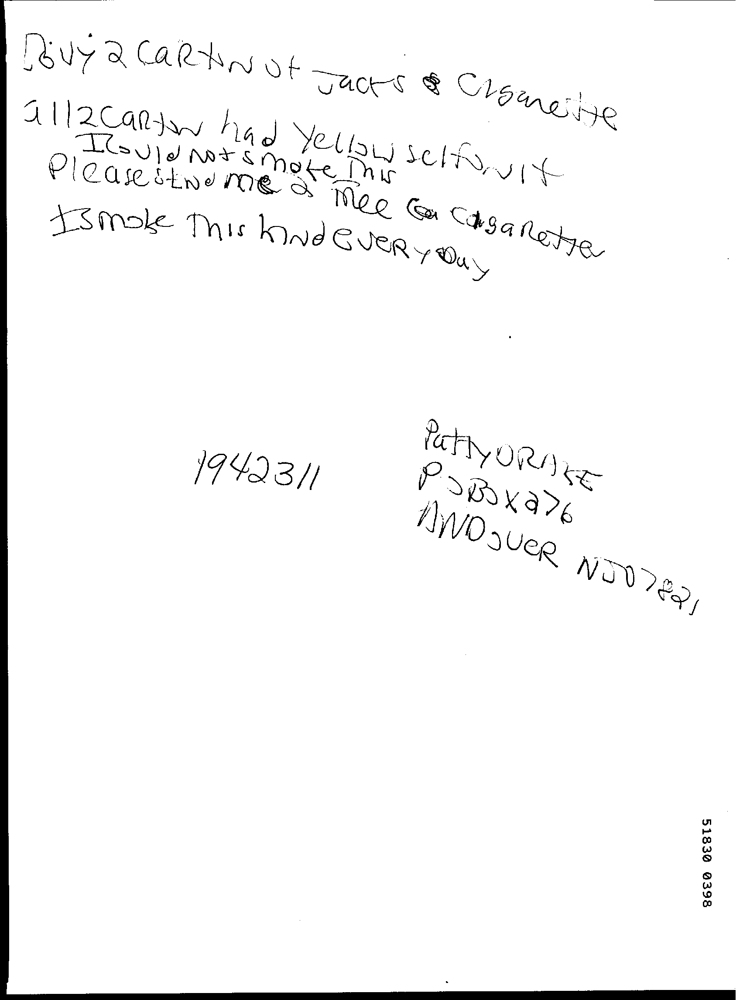 I Buy 2 CARtoN of Jacks Cigarette
all 2 CARton had Yellow selfon it
I Could Not smoke This
Please send me 2 Free Ca Cigarette
I smoke This kind EVERY Day
1942311
Patty DRAKE
PO BOX 276
ANDOVER NJ 07821
51830 0398